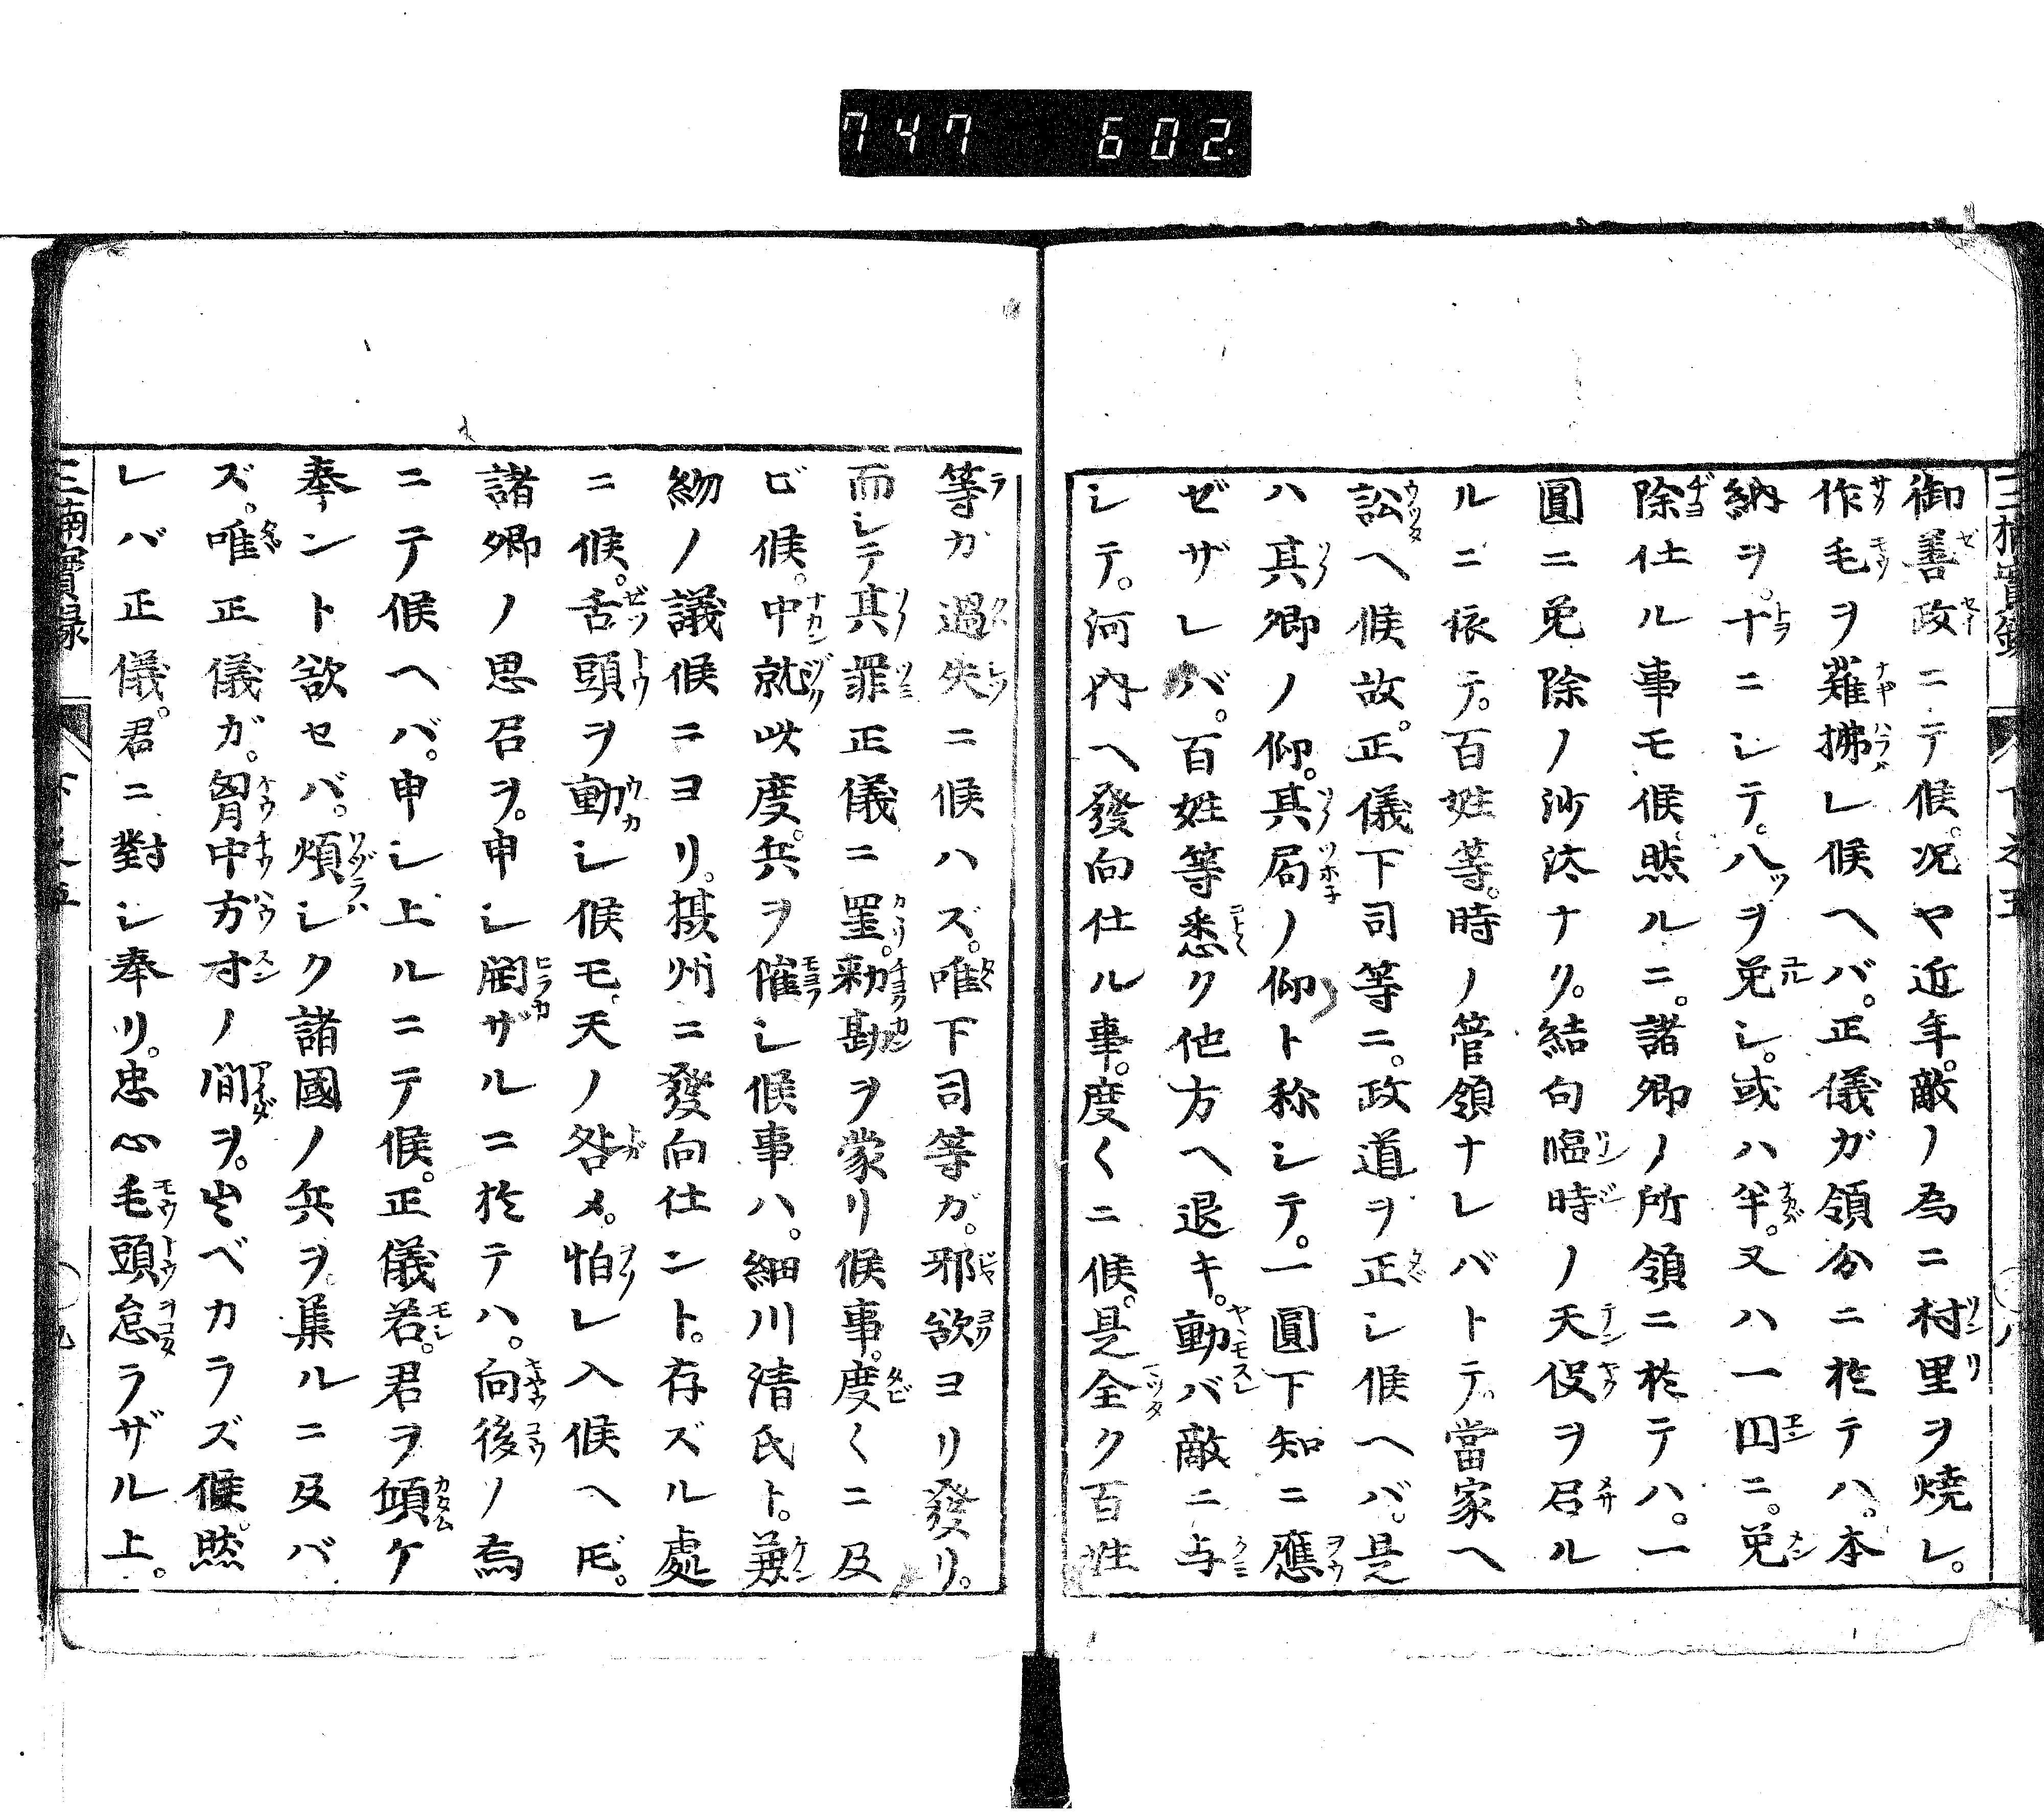 747 602.
御善政ニテ候。况ヤ近年。敵ノ為ニ村里ヲ焼レ。
作毛ヲ薙拂レ候ヘバ。正儀ガ領分ニ於テハ。本
納ヲ。十ニシテ。八ヲ免シ。或ハ半。又ハ一円ニ。免
除仕ル事モ候。然ルニ。諸卿ノ所領ニ於テハ。一
圓ニ免除ノ沙汰ナク。結句臨時ノ天役ヲ召ル
ルニ依テ。百姓等。時ノ管領ナレバトテ。當家ヘ
訟ヘ候故。正儀下司等ニ。政道ヲ正シ候ヘバ。是
ハ其卿ノ仰。其局ノ仰ト称シテ。一圓下知ニ應
ゼザレバ。百姓等悉ク他方ヘ退キ。動バ敵ニ与
シテ。河内ヘ發向仕ル事。度〱ニ候。是全ク百姓
等ガ過失ニ候ハズ。唯下司等ガ。邪欲ヨリ發リ。
而シテ其罪正儀ニ罣。勅勘ヲ蒙リ候事。度〱ニ及
ビ候。中就此度。兵ヲ催シ候事ハ。細川清氏ト。兼
約ノ議候ニヨリ。摂州ニ發向仕ント。存ズル處
ニ候。舌頭ヲ動シ候モ。天ノ咎メ。怕レ入候ヘ𪜈。
諸卿ノ思召ヲ。申シ開ザルニ於テハ。向後ノ為
ニテ候ヘバ。申シ上ルニテ候。正儀若。君ヲ傾ケ
奉ント欲セバ。煩シク諸國ノ兵ヲ。集ルニ及バ
ズ。唯正儀ガ。胷中方寸ノ間ヲ。出ベカラズ候。然
レバ正儀。君ニ對シ奉リ。忠心毛頭怠ラザル上。